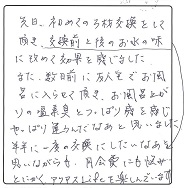 先日、初めてのろ材交換をして
頂き、交換前と後のお水の味
に改めて効果を感じました
また、数日前に万人宅でお風
呂に入らせて頂き、お風呂上が
りの塩素臭とつっぱり感を感じ
やっぱり違うんだなあと思いました
半年に一度の交換にしたいなあと
思いながらも、月会費にも悩み…
とにかく、アクアスLifeを楽しんでいます